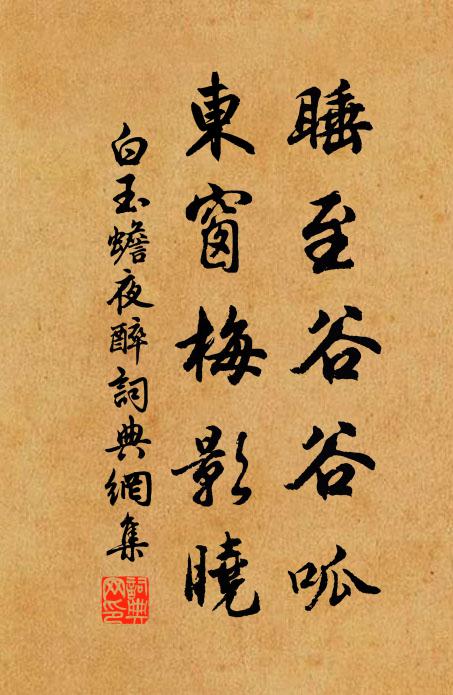 睡至谷谷呱
東窗梅影曉
白玉蟾夜醉詞典網集
詞典網印